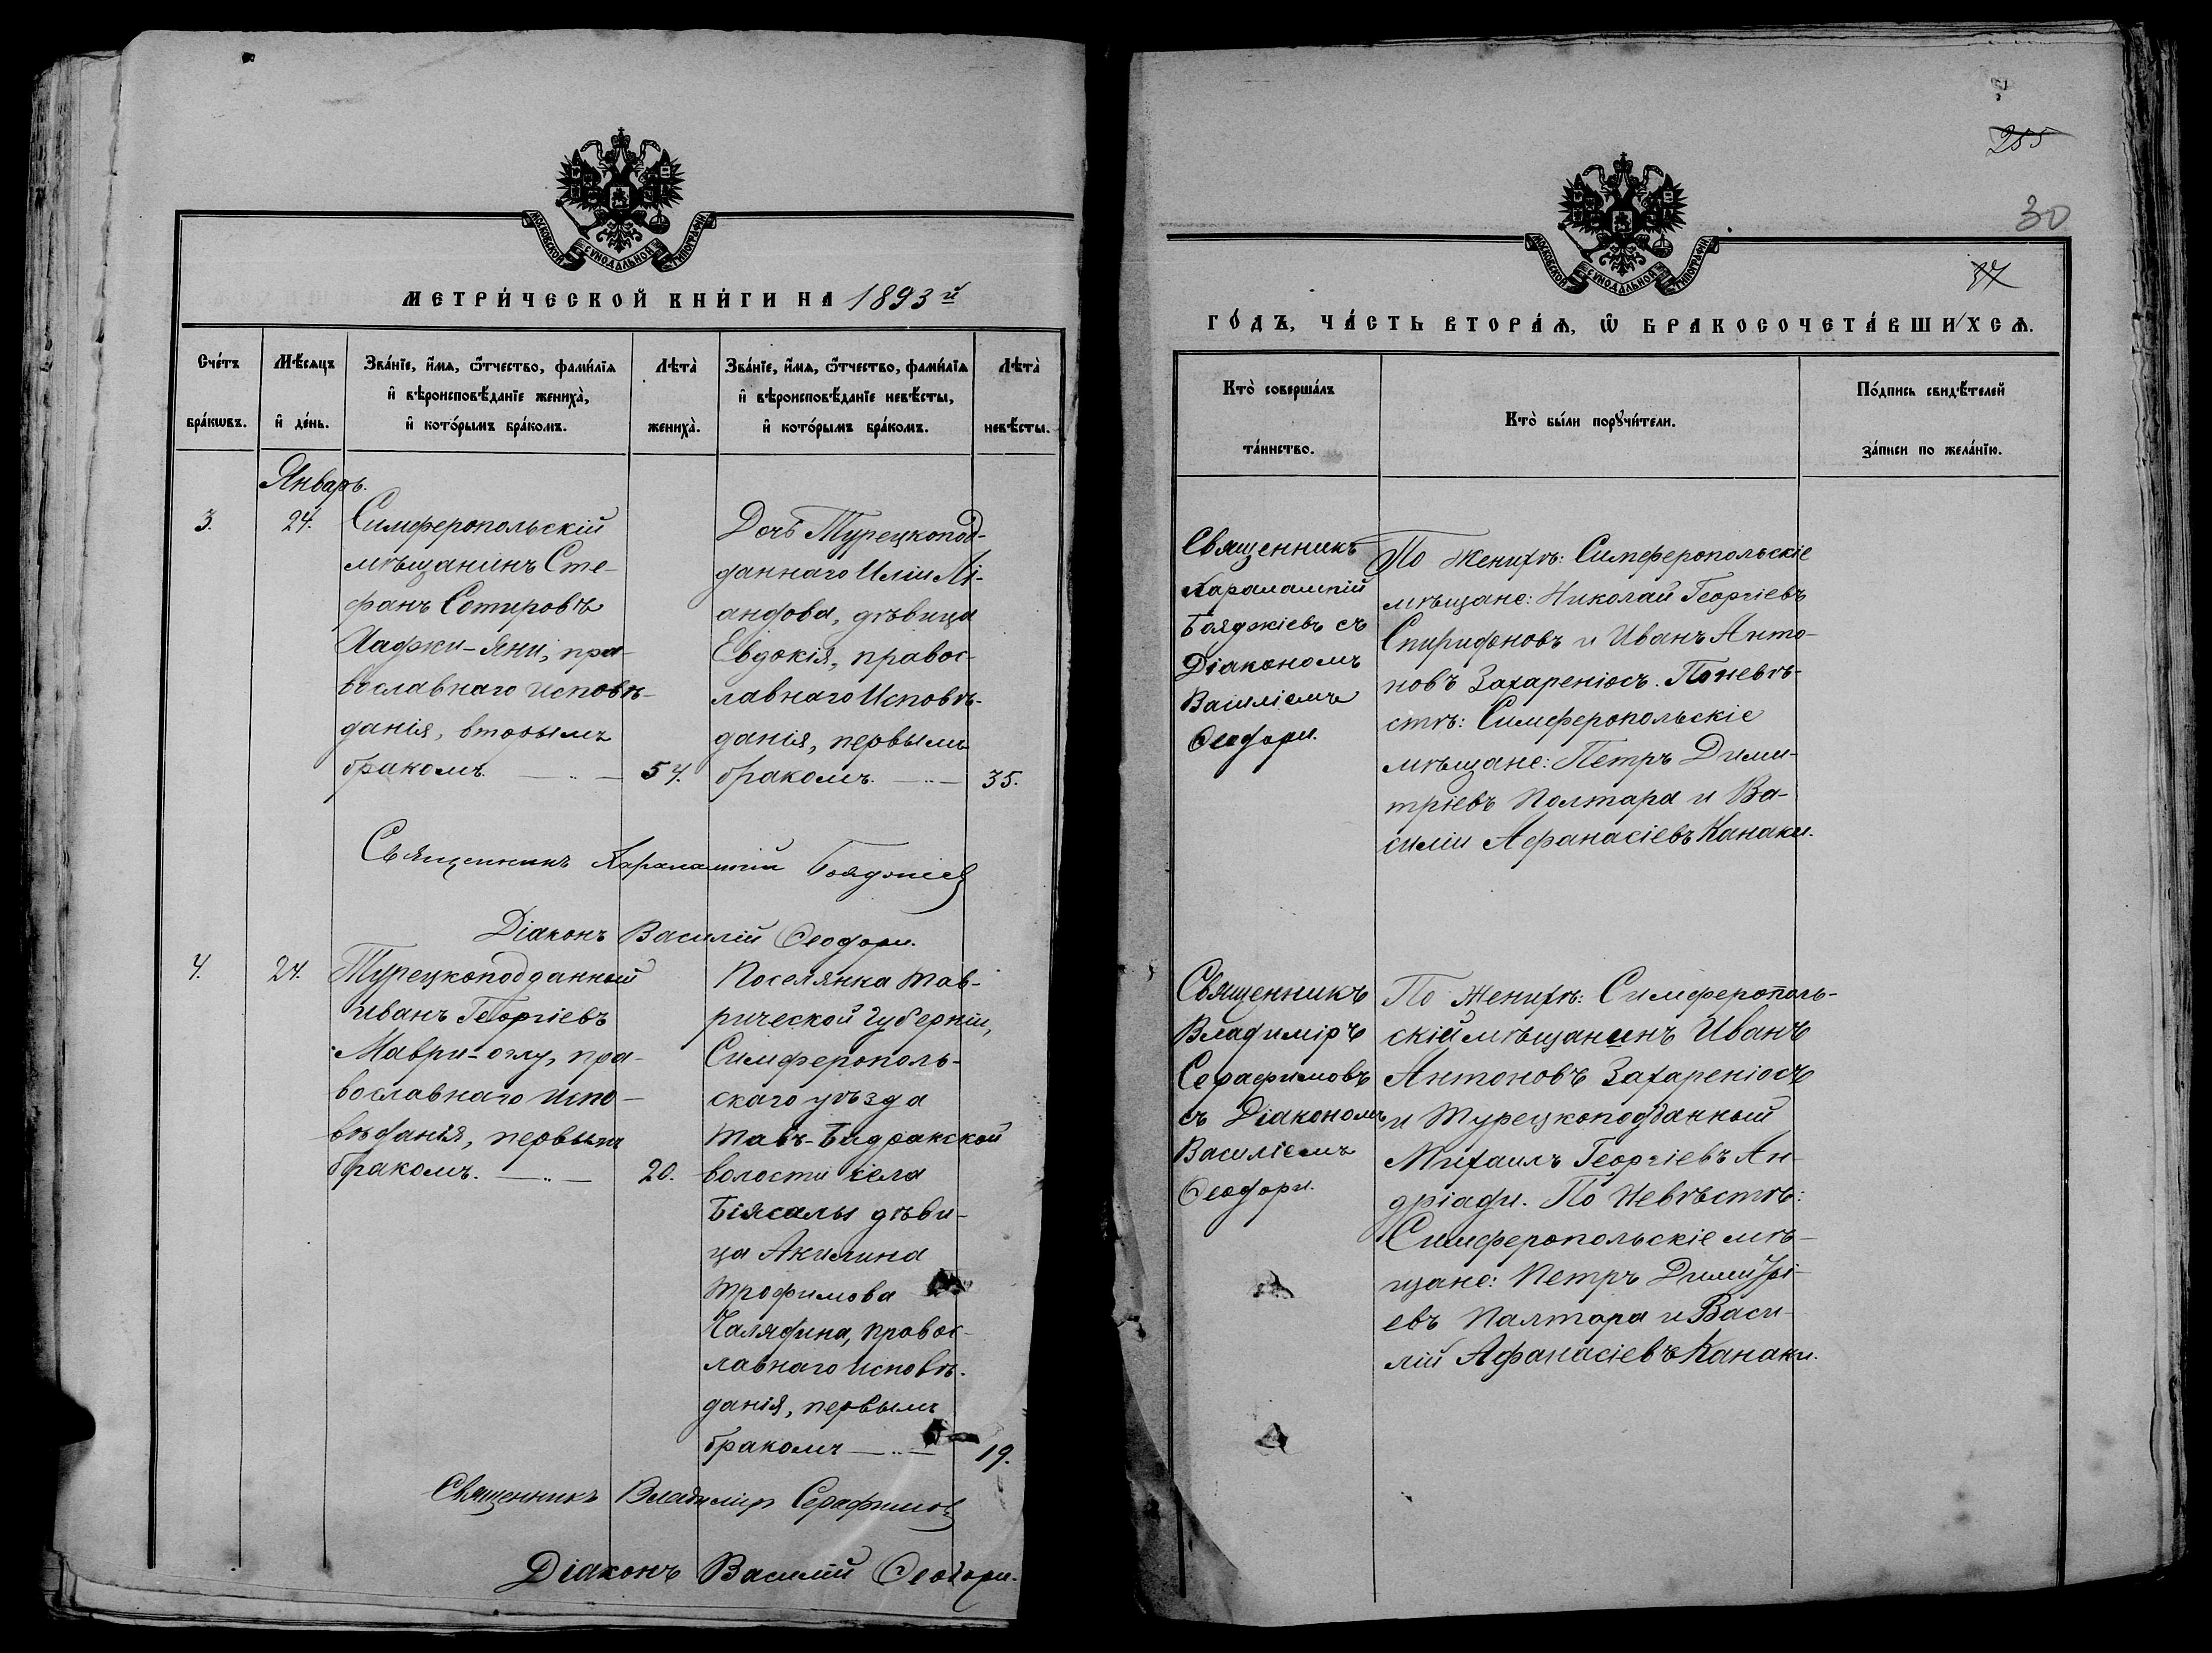 МОСКОВСКОЙ СУНОДАЛЬНОЙ ТИПОГРАФІИ
МЕТРИ́ЧЕСКОЙ КНИ́ГИ НА 1893й
Сче́тъ бра́кωвъ.
Мѣ́сяцъ и҆ де́нь.
Зва́нїе, и҆́мѧ, ѻ҆́тчество, фами́лїѧ и҆ вѣроисповѣ́данїе жениха̀, и҆ кото́рымъ бра́комъ.
Лѣта̀ жениха̀.
Зва́нїе, и҆́мѧ, ѻ҆́тчество, фами́лїѧ и҆ вѣроисповѣ́данїе невѣ́сты, и҆ кото́рымъ бра́комъ.
Лѣта̀ невѣ́сты.
Январь.
3.
24.
Симферопольскій
мѣщанинъ Сте-
фанъ Сотировъ
Хаджи-Яни, пра-
вославнаго исповѣ-
данія, вторымъ
бракомъ.
57.
Дочь Турецкопод-
даннаго Иліи Лі-
андова, дѣвица
Евдокія, правос-
лавнаго Исповѣ-
данія, первымъ
бракомъ.
35.
Священникъ Харалампій Бояджіевъ
Діаконъ Василій Ѳеодори.
4.
24.
Турецкоподданный
Иванъ Георгіевъ
Маври-оглу, пра-
вославнаго испо-
вѣданія, первымъ
бракомъ.
20.
Поселянка Тав-
рической Губерніи,
Симферополь-
скаго уѣзда
Тавъ-Бадракской
волости села
Біясалы дѣви-
ца Акилина
Трофимова
Чалядина, правос-
лавнаго исповѣ-
данія, первымъ
бракомъ
19.
Священникъ Владиміръ Серафимовъ
Діаконъ Василій Ѳеодори.
255
30
37
МОСКОВСКОЙ СУНОДАЛЬНОЙ ТИПОГРАФІИ
ГО́ДЪ, ЧА́СТЬ ВТОРА́Ѧ, Ѽ БРАКОСОЧЕТА́ВШИХСѦ.
Кто̀ соверша́лъ та́инство.
Кто̀ бы́ли порꙋчи́тели.
По́дпись свидѣ́телей за́писи по жела́нїю.
Священникъ
Харалампій
Бояджіевъ съ
Діакономъ
Василіемъ
Ѳеодори.
По Женихѣ: Симферопольскіе
мѣщане: Николай Георгіевъ
Спиридоновъ и Иванъ Анто-
новъ Захареніосъ. По невѣ-
стѣ: Симферопольскіе
мѣщане: Петръ Дими-
тріевъ Полтара и Ва-
силіи Афанасіевъ Канаки.
Священникъ
Владиміръ
Серафимовъ
съ Діакономъ
Василіемъ
Ѳеодори.
По Женихѣ: Симферополь-
скій мѣщанинъ Иванъ
Антоновъ Захареніосъ
и Турецкоподданный
Михаилъ Георгіевъ Ан-
дріади. По Невѣстѣ:
Симферопольскіе мѣ-
щане: Петръ Димитрі-
евъ Палтара и Васи-
лій Афанасіевъ Канаки.